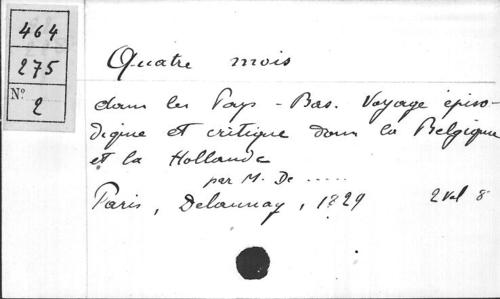 464
275
Nº
2
Quatre mois
dans les Pays-Bas. Voyage épiso-
dique et critique dans la Belgique
et la Hollande
par M. De .....
Paris, Delaunay, 1829 2 vol 8°